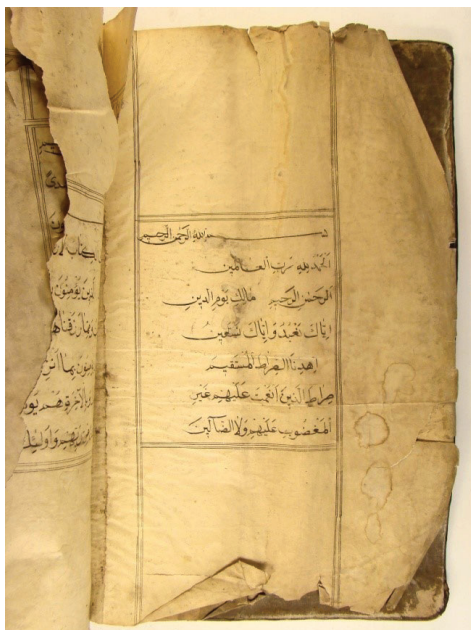 بسم الله الرحمن الرحيم
الحمد لله رب العالمين
الرحمن الرحيم مالك يوم الدين
اياك نعبد واياك نستعين
اهدنا الصراط المستقيم
صراط الذين انعمت عليهم غير
المغضوب عليهم ولا الضآلين
كتاب لا
يؤمنون
رزقناهم
بما انز
هم يو
واولئك